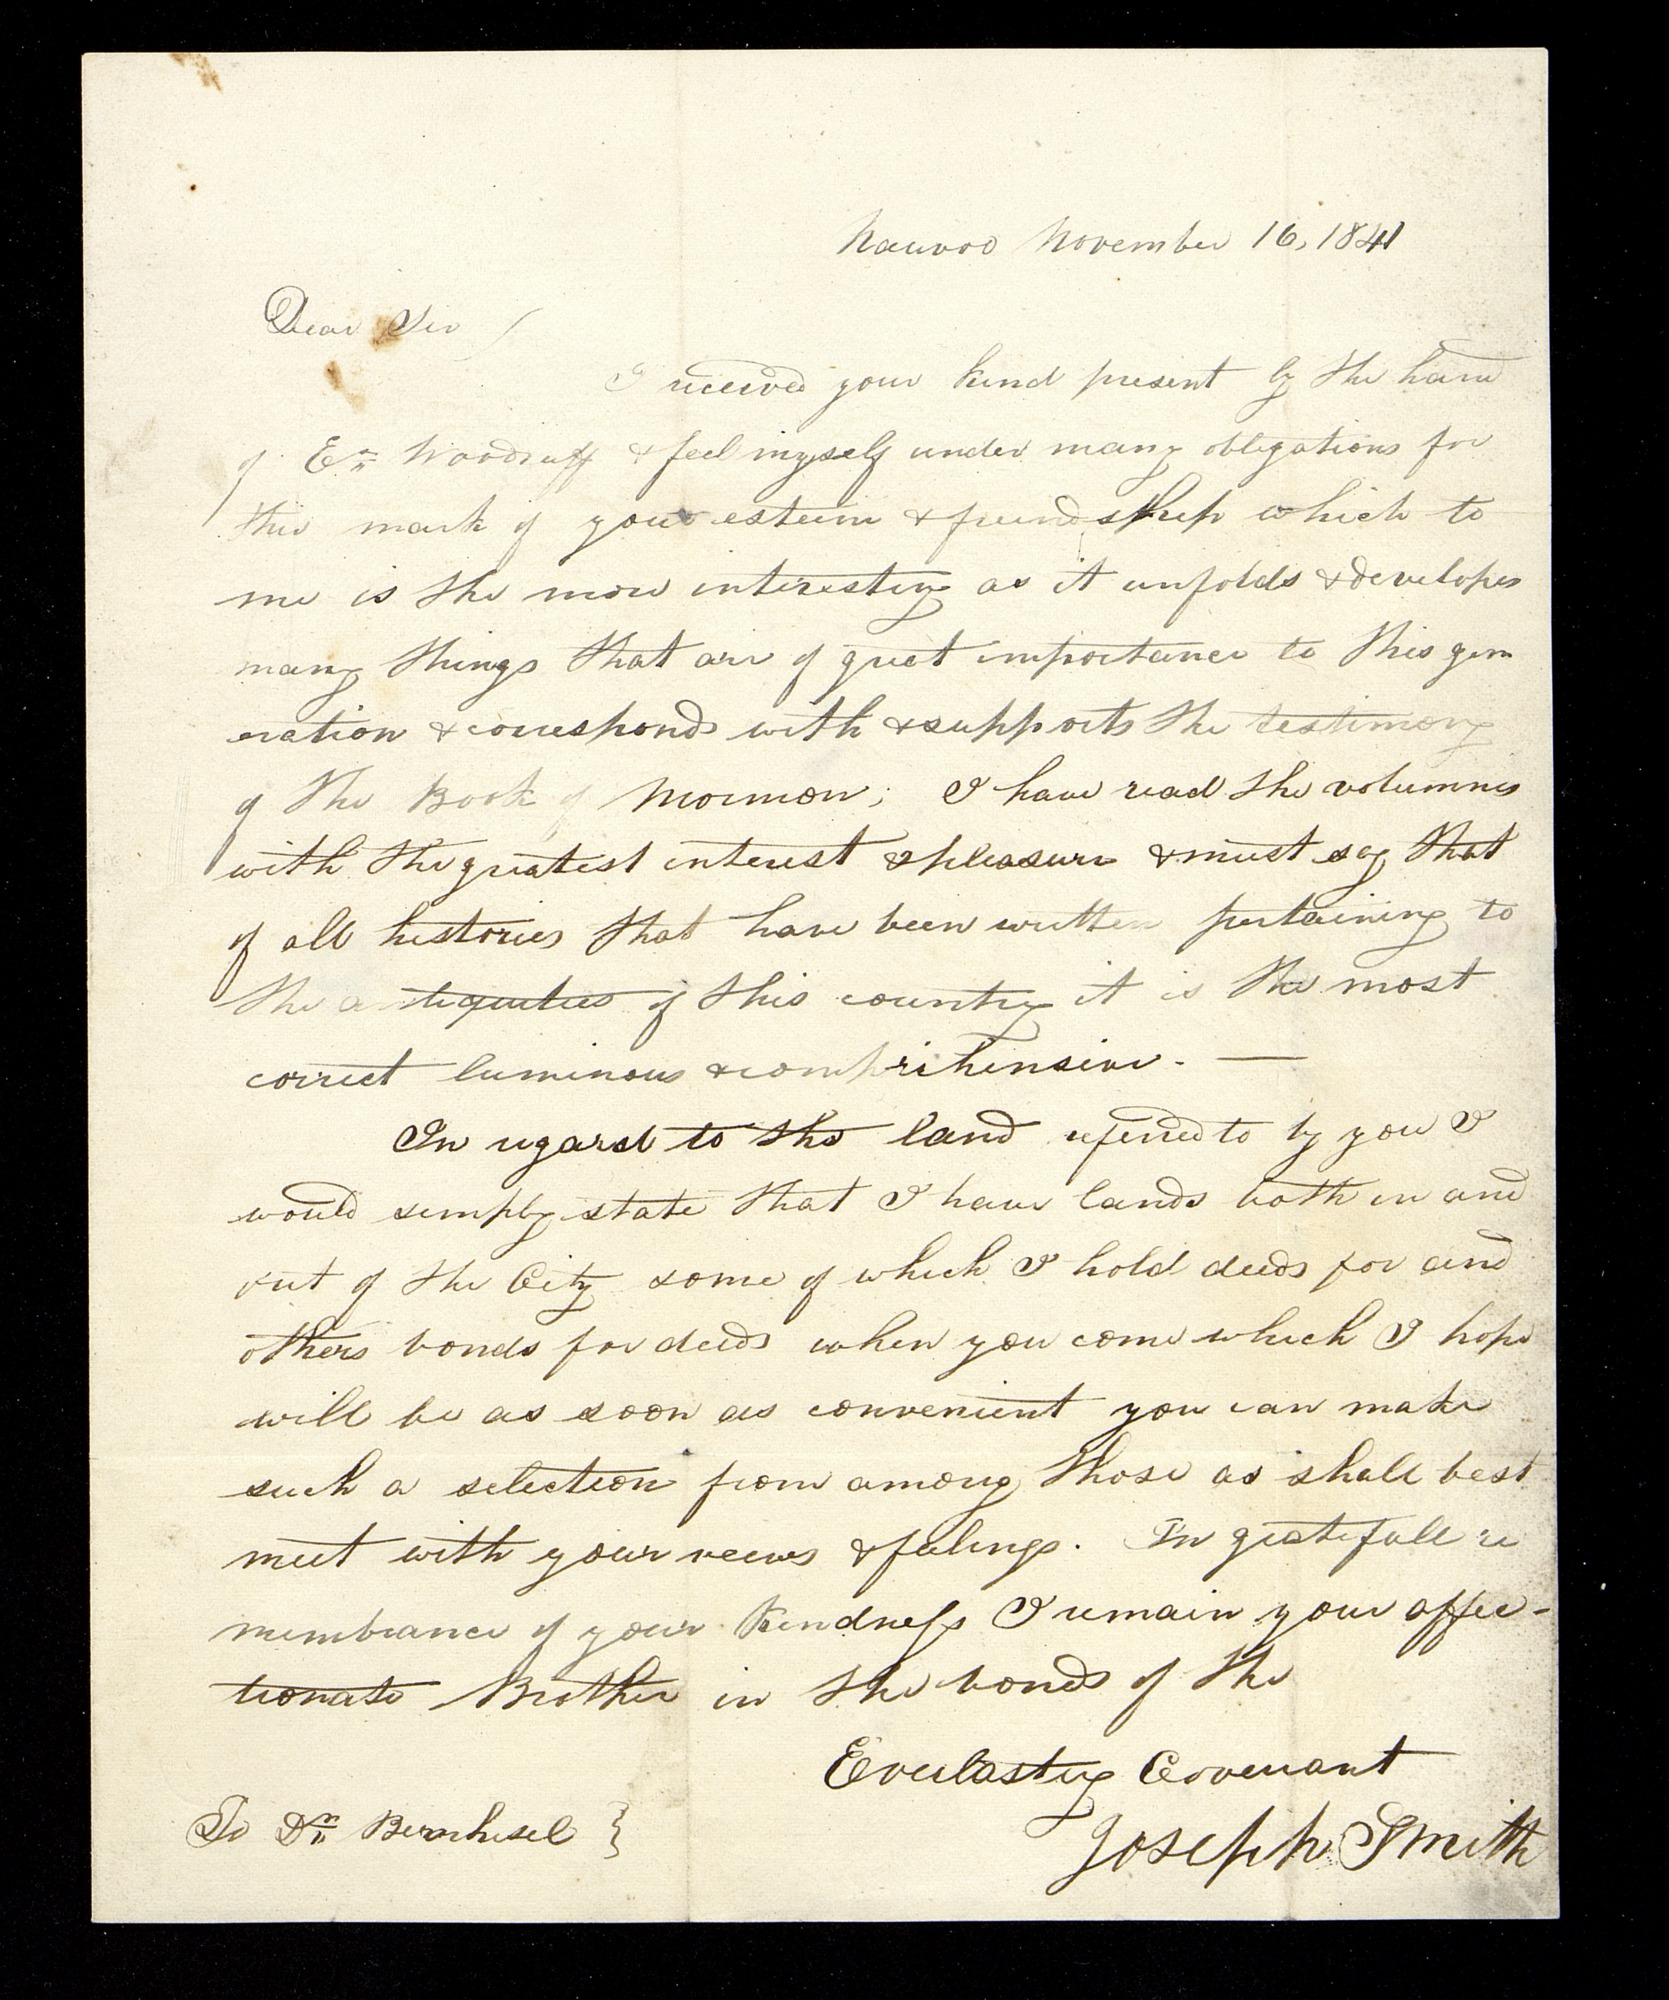 Nauvoo November 16, 1841
Dear Sir /
I received your kind present by the hand
of Er. Woodruff & feel myself under many obligations for
this mark of your esteem & friendship which to
me is the more interesting as it unfolds & developes
many things that are of great importance to this gen
eration & corresponds with & supports the testimony
of the Book of Mormon; I have read the volumnes
with the greatest interest & pleasure & must say that
of all histories that have been written pertaining to
the antiquities of this country it is the most
correct luminous & comprihensive. —
In regard to the land refered to by you I
would simply state that I have lands both in and
out of the City some of which I hold deeds for and
others bonds for deeds when you come which I hope
will be as soon as convenient you can make
such a selection from among those as shall best
meet with your veiws & feelings. In gratefull re
membrance of your kindness I remain your affec-
tionate Brother in the bonds of the
Everlasting Covenant
Joseph Smith
To Dr. Bernhisel }